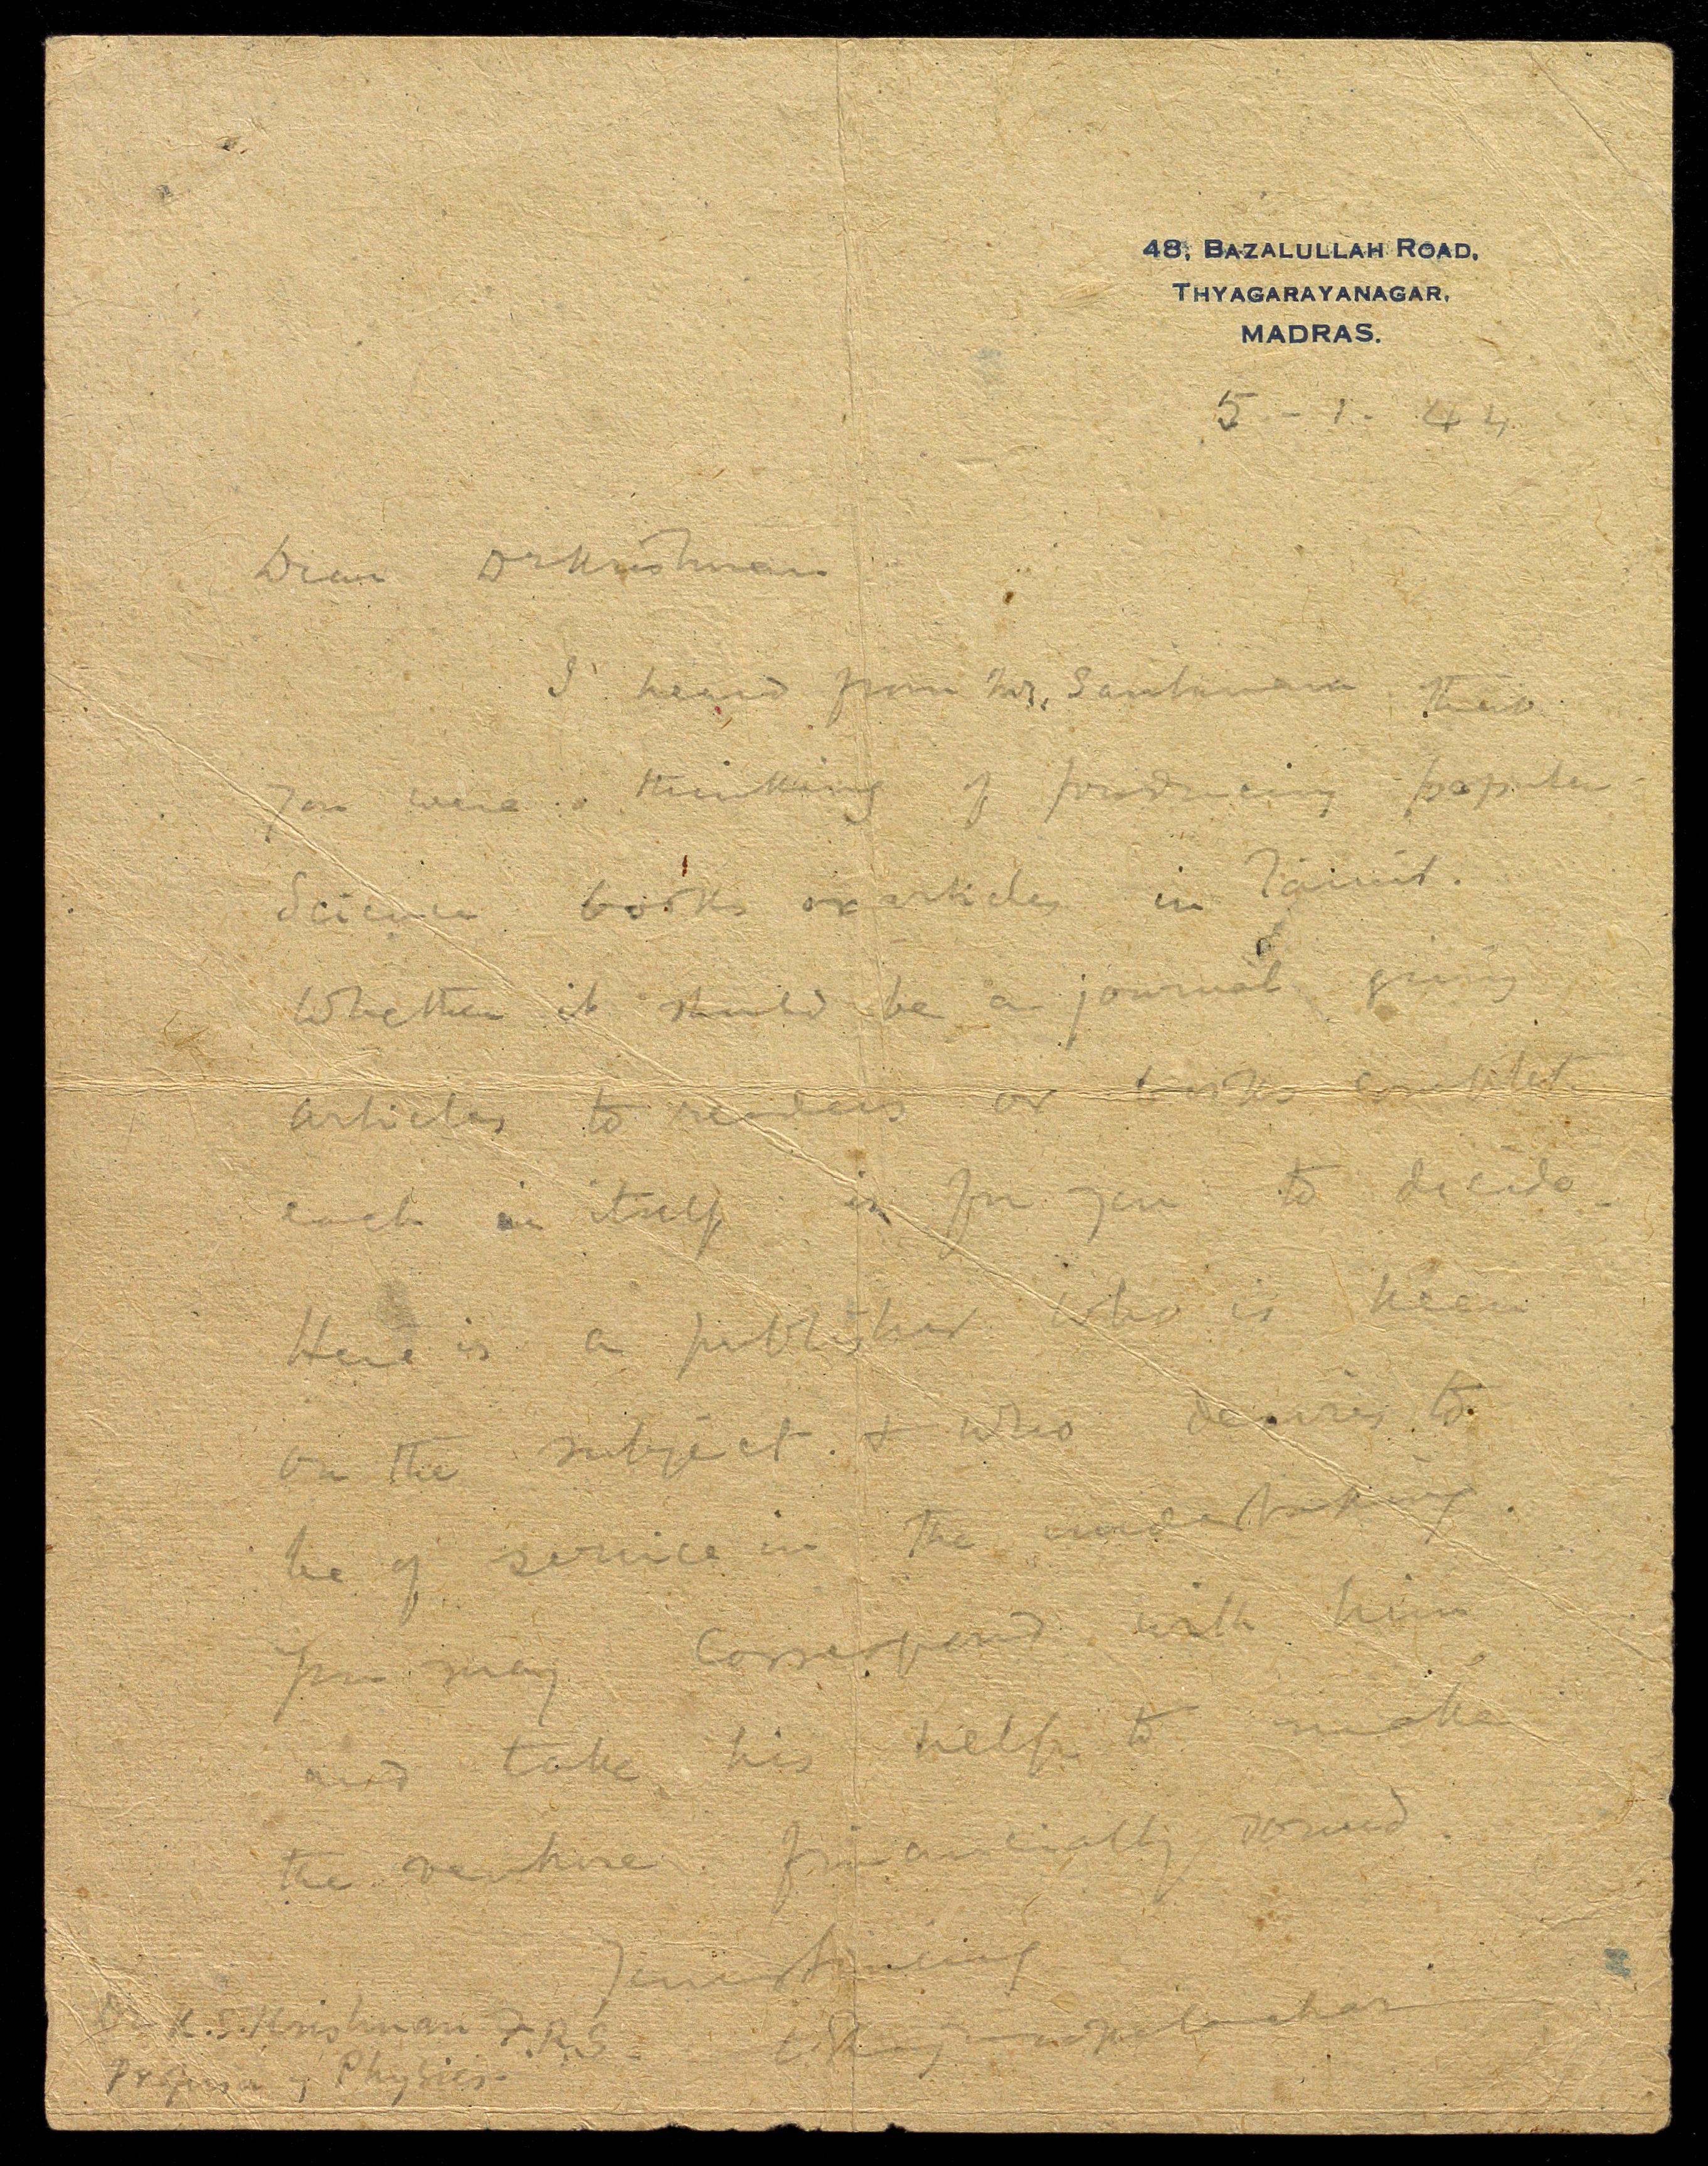 48, BAZALULLAH ROAD,
THYAGARAYANAGAR,
MADRAS.
5-1-44
Dear Dr Krishnan
I heard from Mr. Santhanam that
you were thinking of producing popular
Science books or articles in Tamil.
Whether it should be a journal giving
articles to readers or books complete
each in itself is for you to decide.
Here is a publisher who is keen
on the subject & who desires to
be of service in the undertaking.
You may correspond with him
and take his help to make
the venture financially sound.
Yours sincerely
C. Rajagopalachari
Dr K.S. Krishnan F.R.S.
Professor of Physics